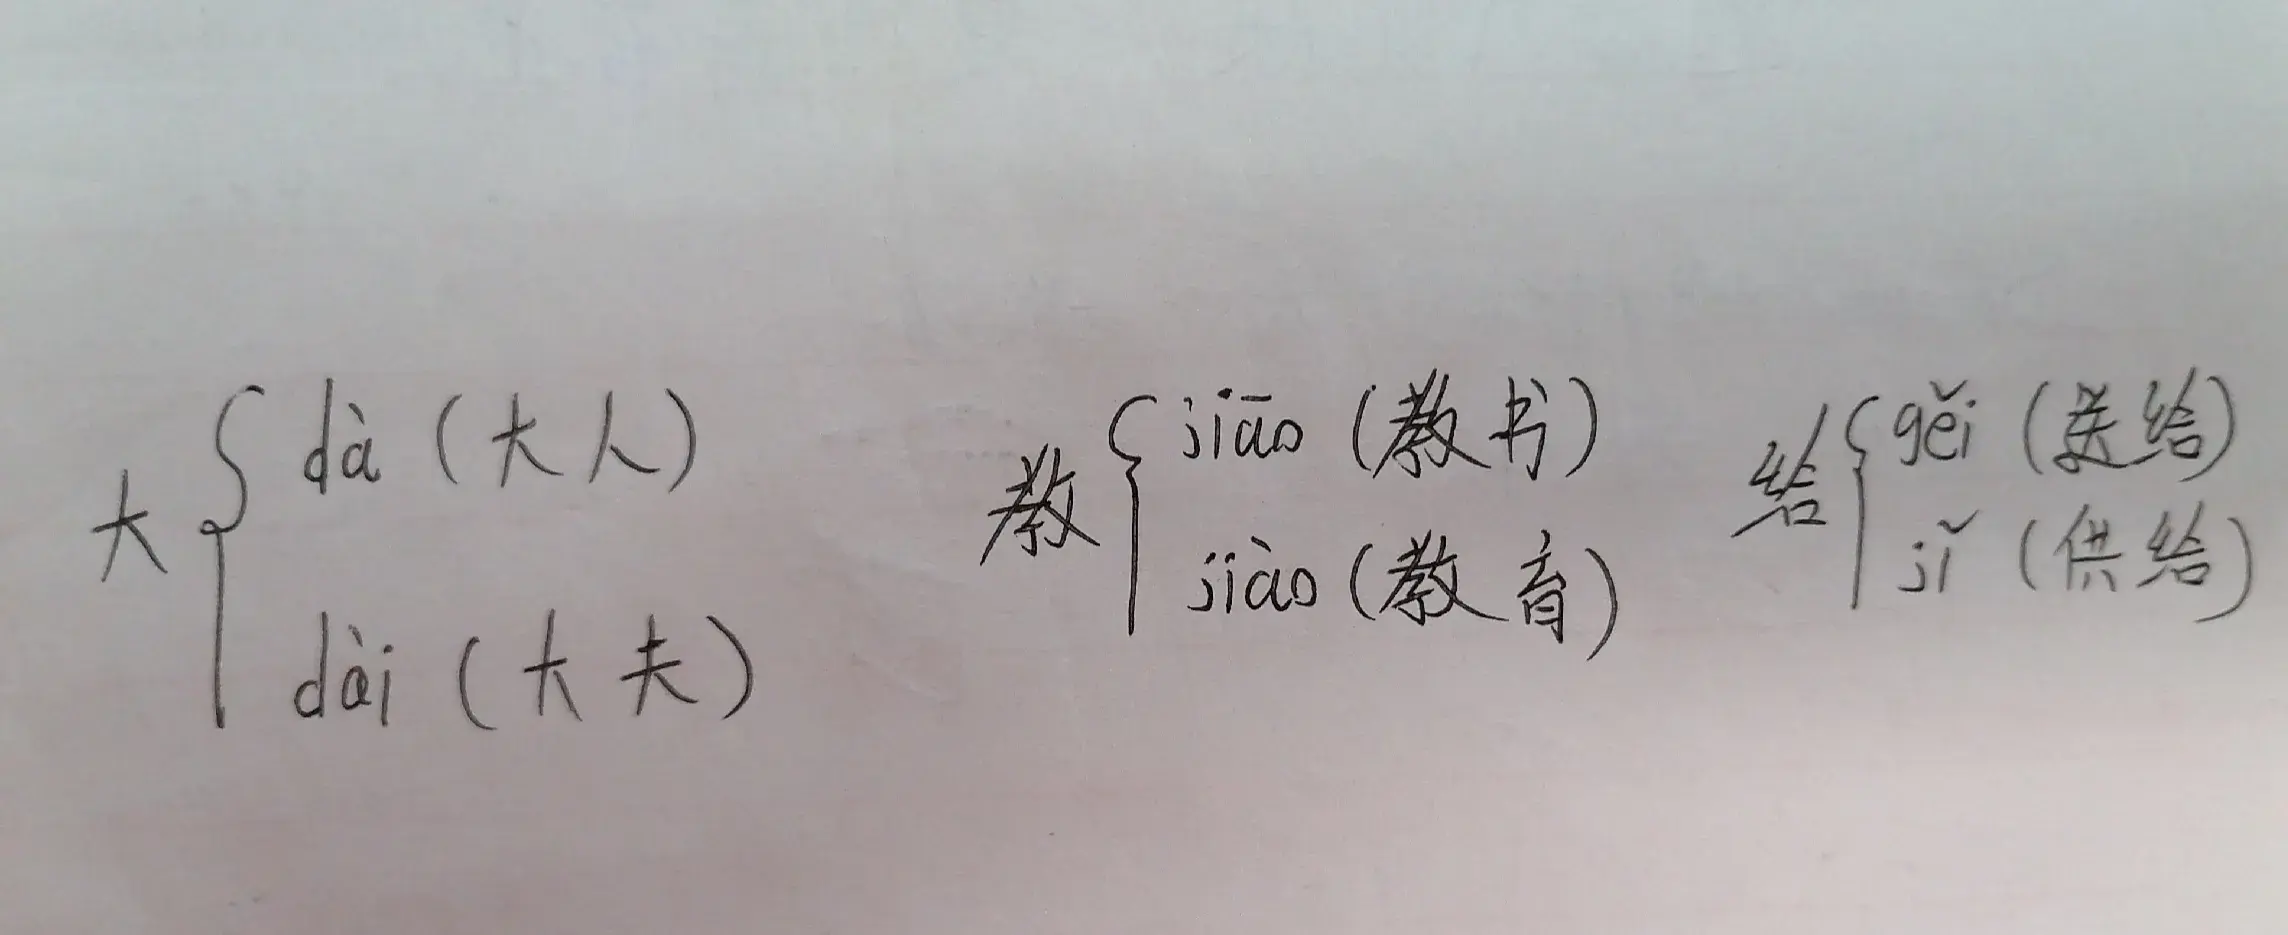 大 { dà (大人)
dài (大夫)
教 { jiāo (教书)
jiào (教育)
给 { gěi (送给)
jǐ (供给)